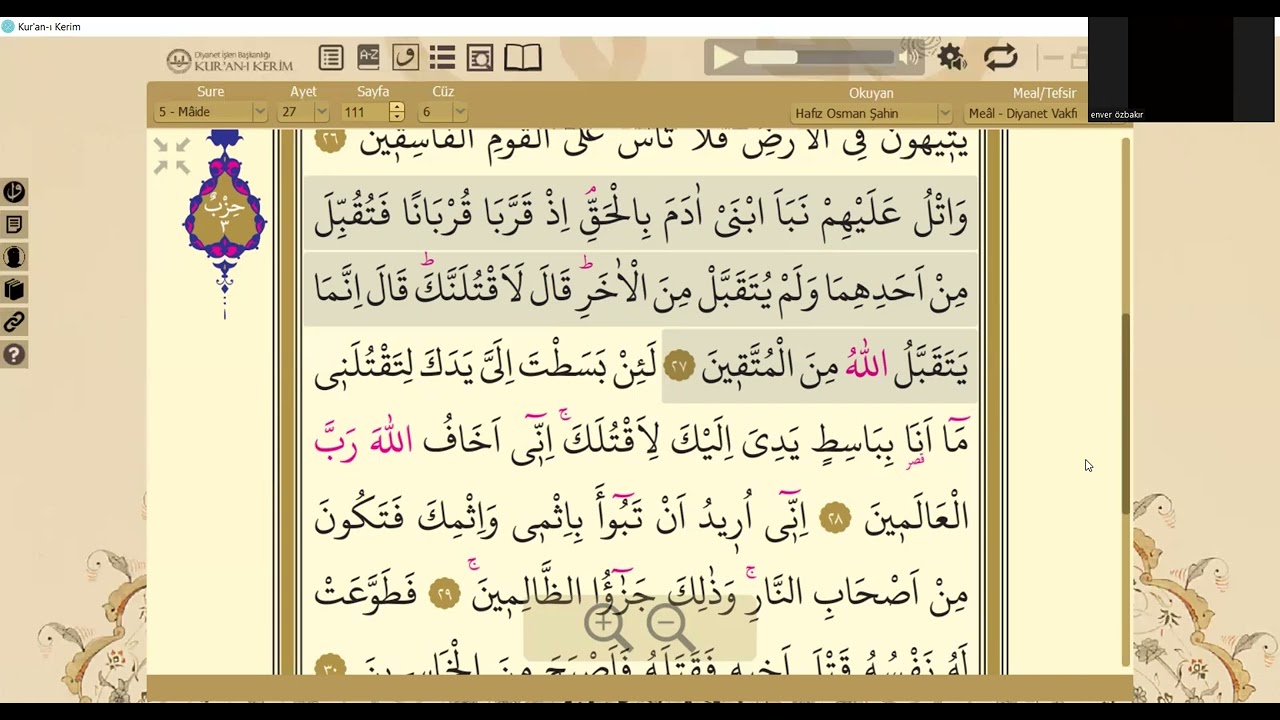 Kur'an-ı Kerim
Diyanet İşleri Başkanlığı
KUR'AN-I KERİM
A-Z
Sure Ayet Sayfa Cüz Okuyan Meal/Tefsir
5 - Mâide 27 111 6 Hafız Osman Şahin Meâl - Diyanet Vakfı
enver özbakır
حِزْبٌ
٣
يَتٖيهُونَ فِى الْاَرْضِ فَلَا تَاْسَ عَلَى الْقَوْمِ الْفَاسِقٖينَ ٢٦
وَاتْلُ عَلَيْهِمْ نَبَاَ ابْنَىْ اٰدَمَ بِالْحَقِّۘ اِذْ قَرَّبَا قُرْبَانًا فَتُقُبِّلَ
مِنْ اَحَدِهِمَا وَلَمْ يُتَقَبَّلْ مِنَ الْاٰخَرِؕ قَالَ لَاَقْتُلَنَّكَؕ قَالَ اِنَّمَا
يَتَقَبَّلُ اللّٰهُ مِنَ الْمُتَّقٖينَ ٢٧ لَئِنْ بَسَطْتَ اِلَىَّ يَدَكَ لِتَقْتُلَنٖى
مَٓا اَنَا۬ بِبَاسِطٍ يَدِىَ اِلَيْكَ لِاَقْتُلَكَۚ اِنّٖٓى اَخَافُ اللّٰهَ رَبَّ
قصر
الْعَالَمٖينَ ٢٨ اِنّٖٓى اُرٖيدُ اَنْ تَبُٓوأَ بِاِثْمٖى وَاِثْمِكَ فَتَكُونَ
مِنْ اَصْحَابِ النَّارِۚ وَذٰلِكَ جَزٰٓؤُا الظَّالِمٖينَۚ ٢٩ فَطَوَّعَتْ
لَهُ نَفْسُهُ قَتْلَ اَخٖيهِ فَقَتَلَهُ فَاَصْبَحَ مِنَ الْخَاسِرٖينَ ٣٠